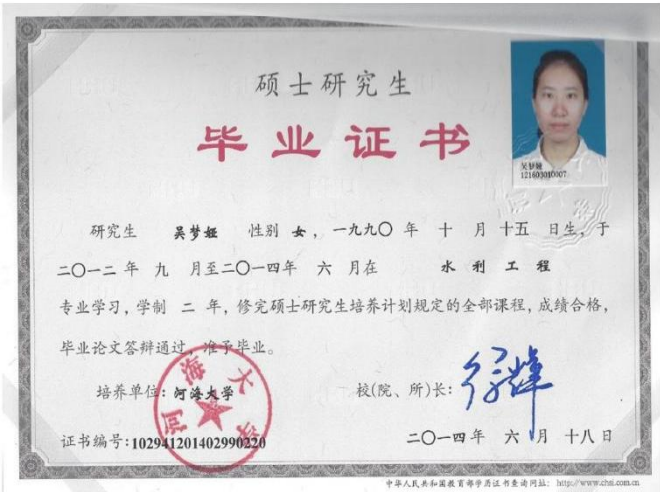 硕士研究生
毕业证书
吴梦娅
121603010007
研究生 吴梦娅 性别 女，一九九〇 年 十 月 十五 日生，于
二〇一二年 九 月至二〇一四年 六 月在 水利工程
专业学习，学制 二 年，修完硕士研究生培养计划规定的全部课程，成绩合格，
毕业论文答辩通过，准予毕业。
河海大学
培养单位：河海大学 校(院、所)长：
证书编号：102941201402990220 二〇一四年 六 月 十八 日
中华人民共和国教育部学历证书查询网址：http://www.chsi.com.cn